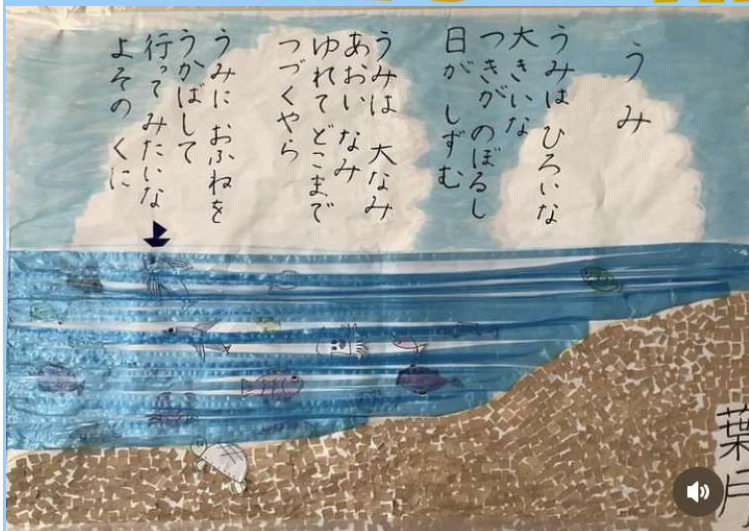 うみ
うみは ひろいな
大きいな
つきが のぼるし
日が しずむ
うみは 大なみ
あおい なみ
ゆれて どこまで
つづくやら
うみに おふねを
うかばして
行ってみたいな
よその くに
葉戸